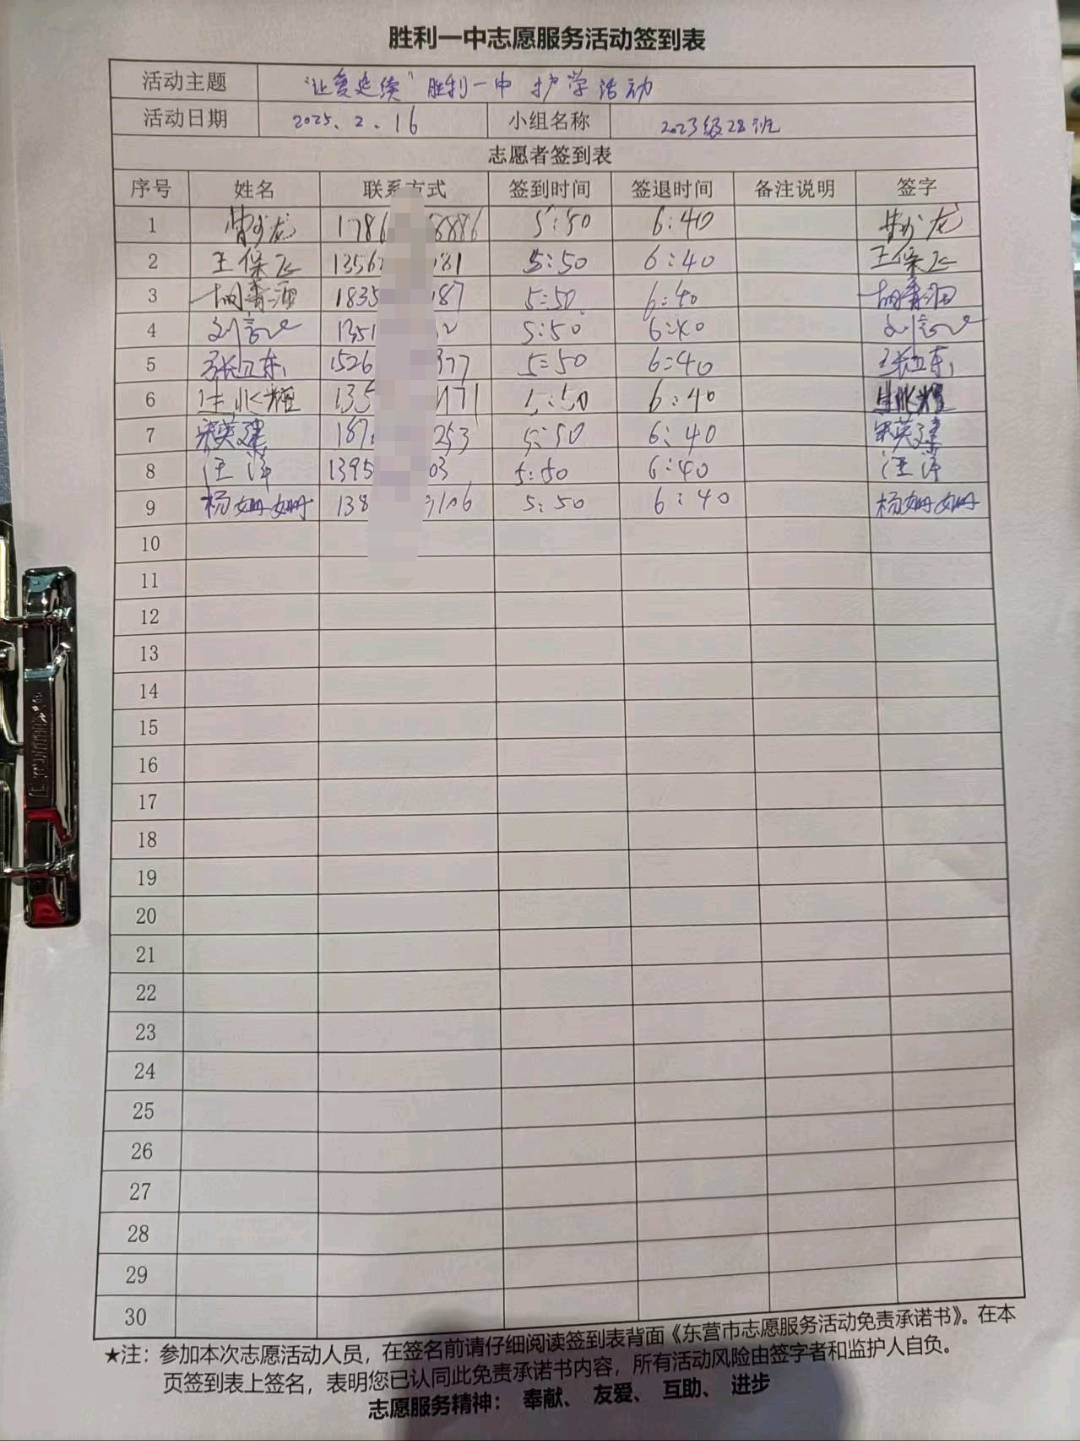 胜利一中志愿服务活动签到表
活动主题 "让爱延续"胜利一中 护学活动
活动日期 2025.2.16 小组名称 2023级28班
志愿者签到表
序号 姓名 联系方式 签到时间 签退时间 备注说明 签字
1 龙 1786 8886 5:50 6:40 龙
2 王保飞 1356 181 5:50 6:40 王保飞
3 胡 1835 187 5:50 6:40 胡
4 刘 1351 2 5:50 6:40 刘
5 张卫东 1526 377 5:50 6:40 张卫东
6 耀 135 171 5:50 6:40 耀
7 宋英建 187 253 5:50 6:40 宋英建
8 汪洋 1395 03 5:50 6:40 汪洋
9 杨姗姗 138 106 5:50 6:40 杨姗姗
10
11
12
13
14
15
16
17
18
19
20
21
22
23
24
25
26
27
28
29
30
★注：参加本次志愿活动人员，在签名前请仔细阅读签到表背面《东营市志愿服务活动免责承诺书》。在本
页签到表上签名，表明您已认同此免责承诺书内容，所有活动风险由签字者和监护人自负。
志愿服务精神： 奉献、 友爱、 互助、 进步